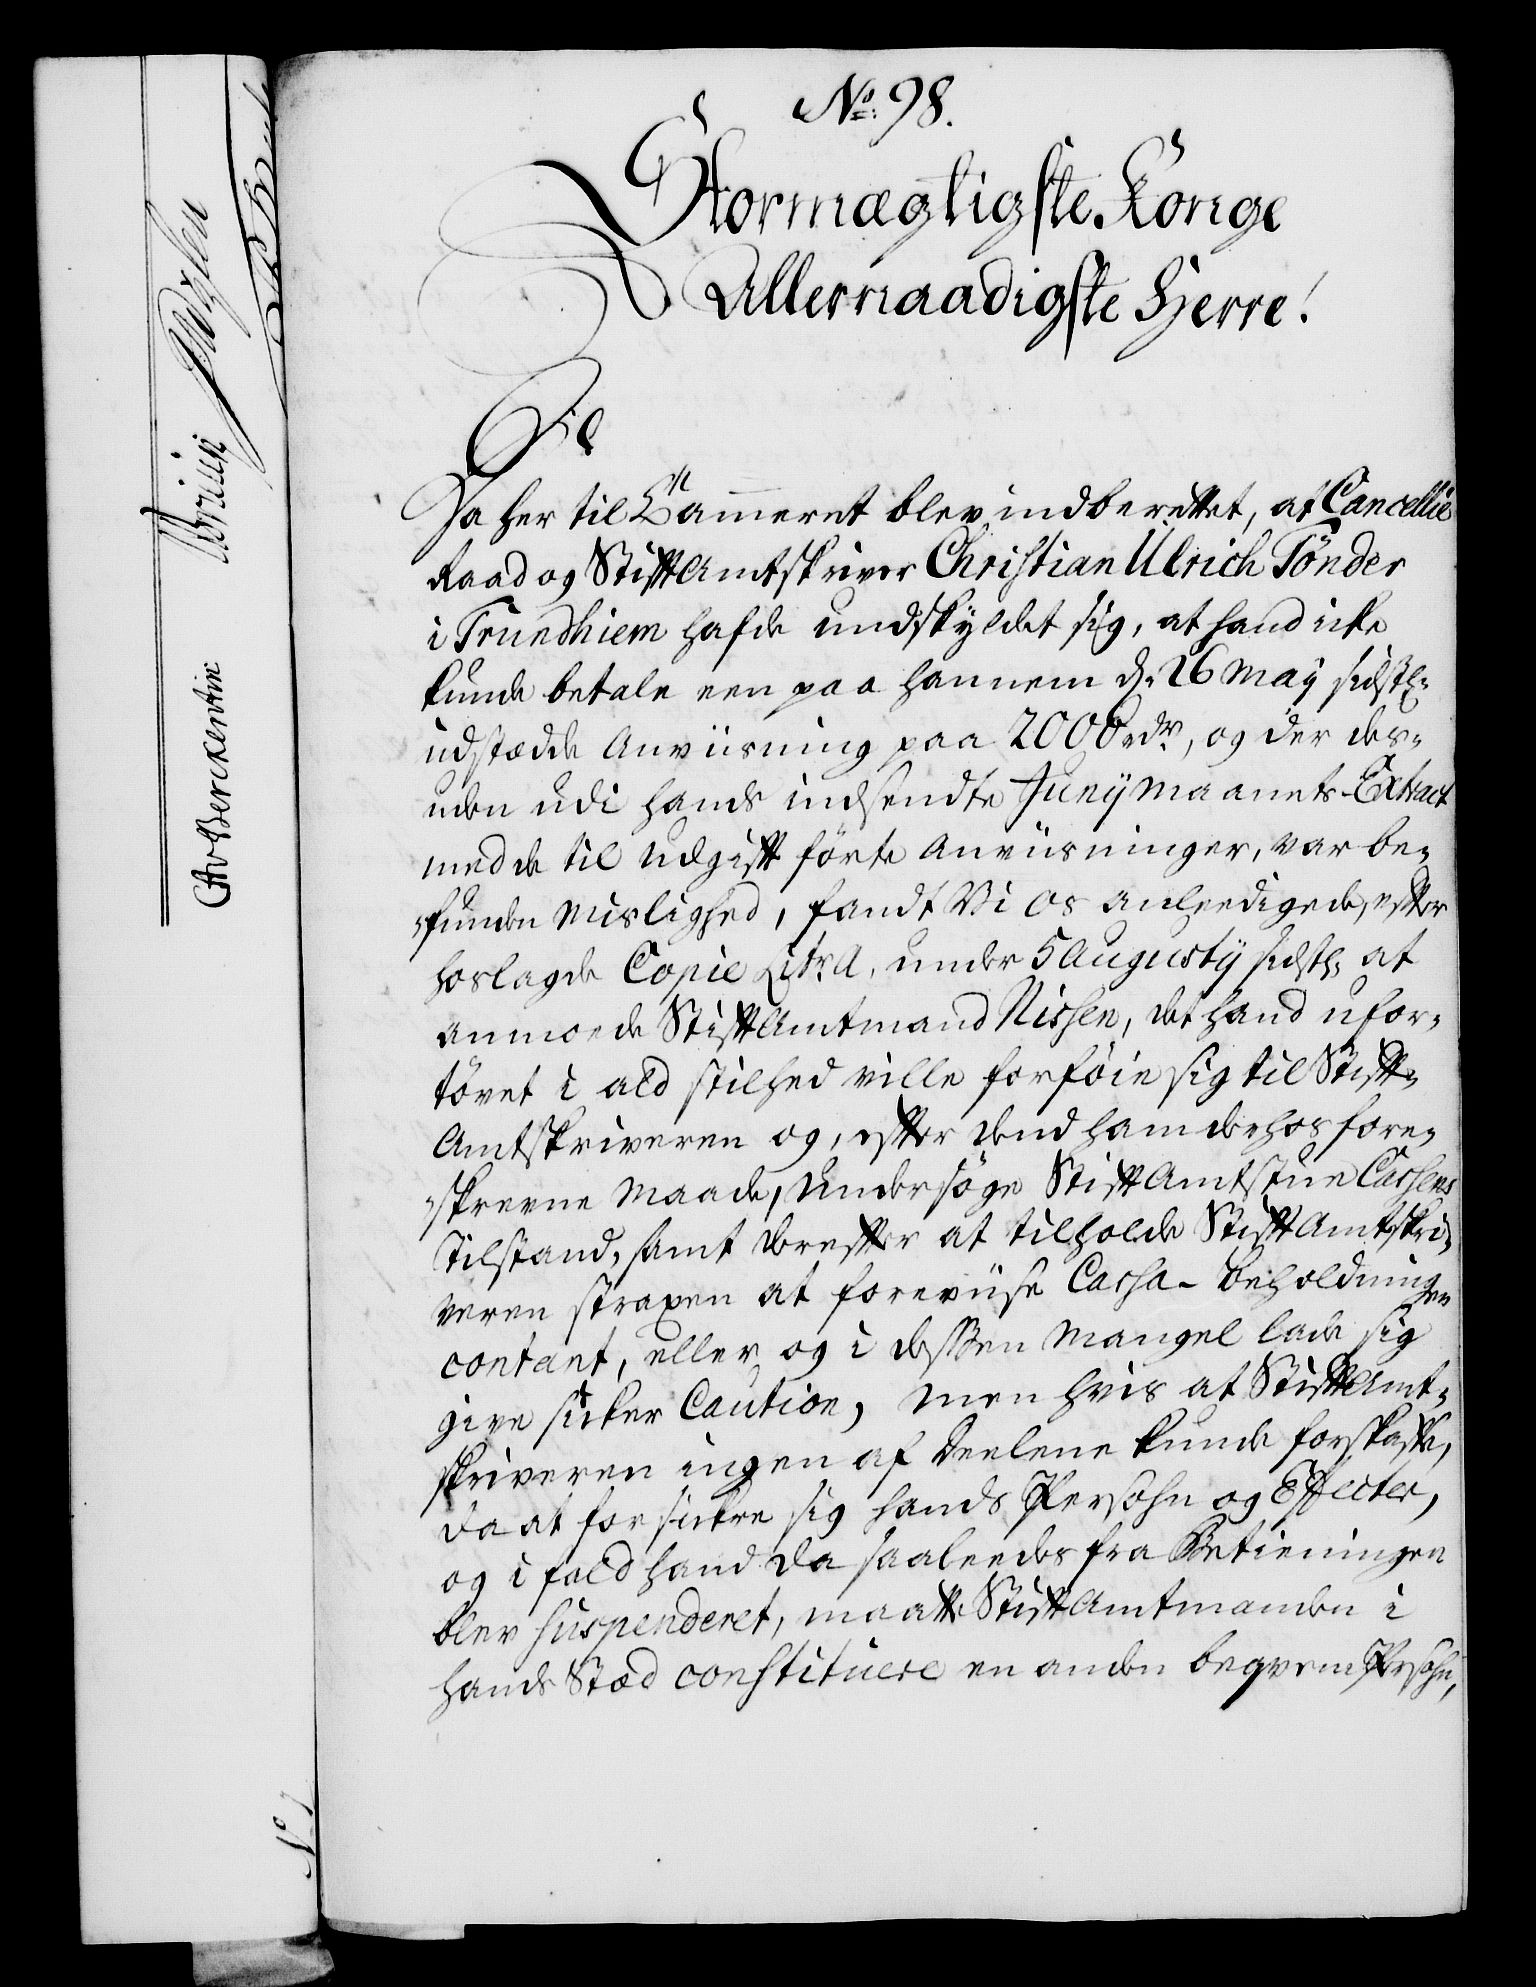 No. 98.
Stormægtigste Konge
Allernaadigste Herre!
Da her til Cammeret blev indberettet, at Cancellie
Raad og StiftAmtskriver Christian Ulrich Tönder
i Trundhiem hafde undskyldet sig, at hand icke
kunde betale een paa hannem d. 26 Maÿ sidstl:
udstædde Anviisning paa 2000 rdr, og der des-
uden udi hands indsendte Junÿ Maanets-Extract
med de til Udgift förte Anviisninger, var be-
funden Mislighed, fandt Vi os anleedigede, efter
hoslagde Copie Litr. A, under 5 Augustÿ sidstl: at
anmode StiftAmtmand Nissen, det hand ufor-
tövet i ald stilhed ville forföie sig til Stift-
Amtskriveren og, efter dend ham derhos fore-
skrevne Maade, undersöge StiftAmtstue Cassens
Tilstand, samt derefter at tilholde StiftAmtskri-
veren straxen at foreviise Cassa-Beholdningen
contant, eller og i dessen Mangel lade sig
give sicker Caution, men hvis at StiftAmt-
skriveren ingen af Deelene kunde forskaffe,
da at forsickre sig hands Persohn og Effecter,
og i fald hand da saaleedes fra Betieningen
blev suspenderet, maatte StiftAmtmanden i
hands Stæd constituere en anden beqvem Persohn,
Berckentin